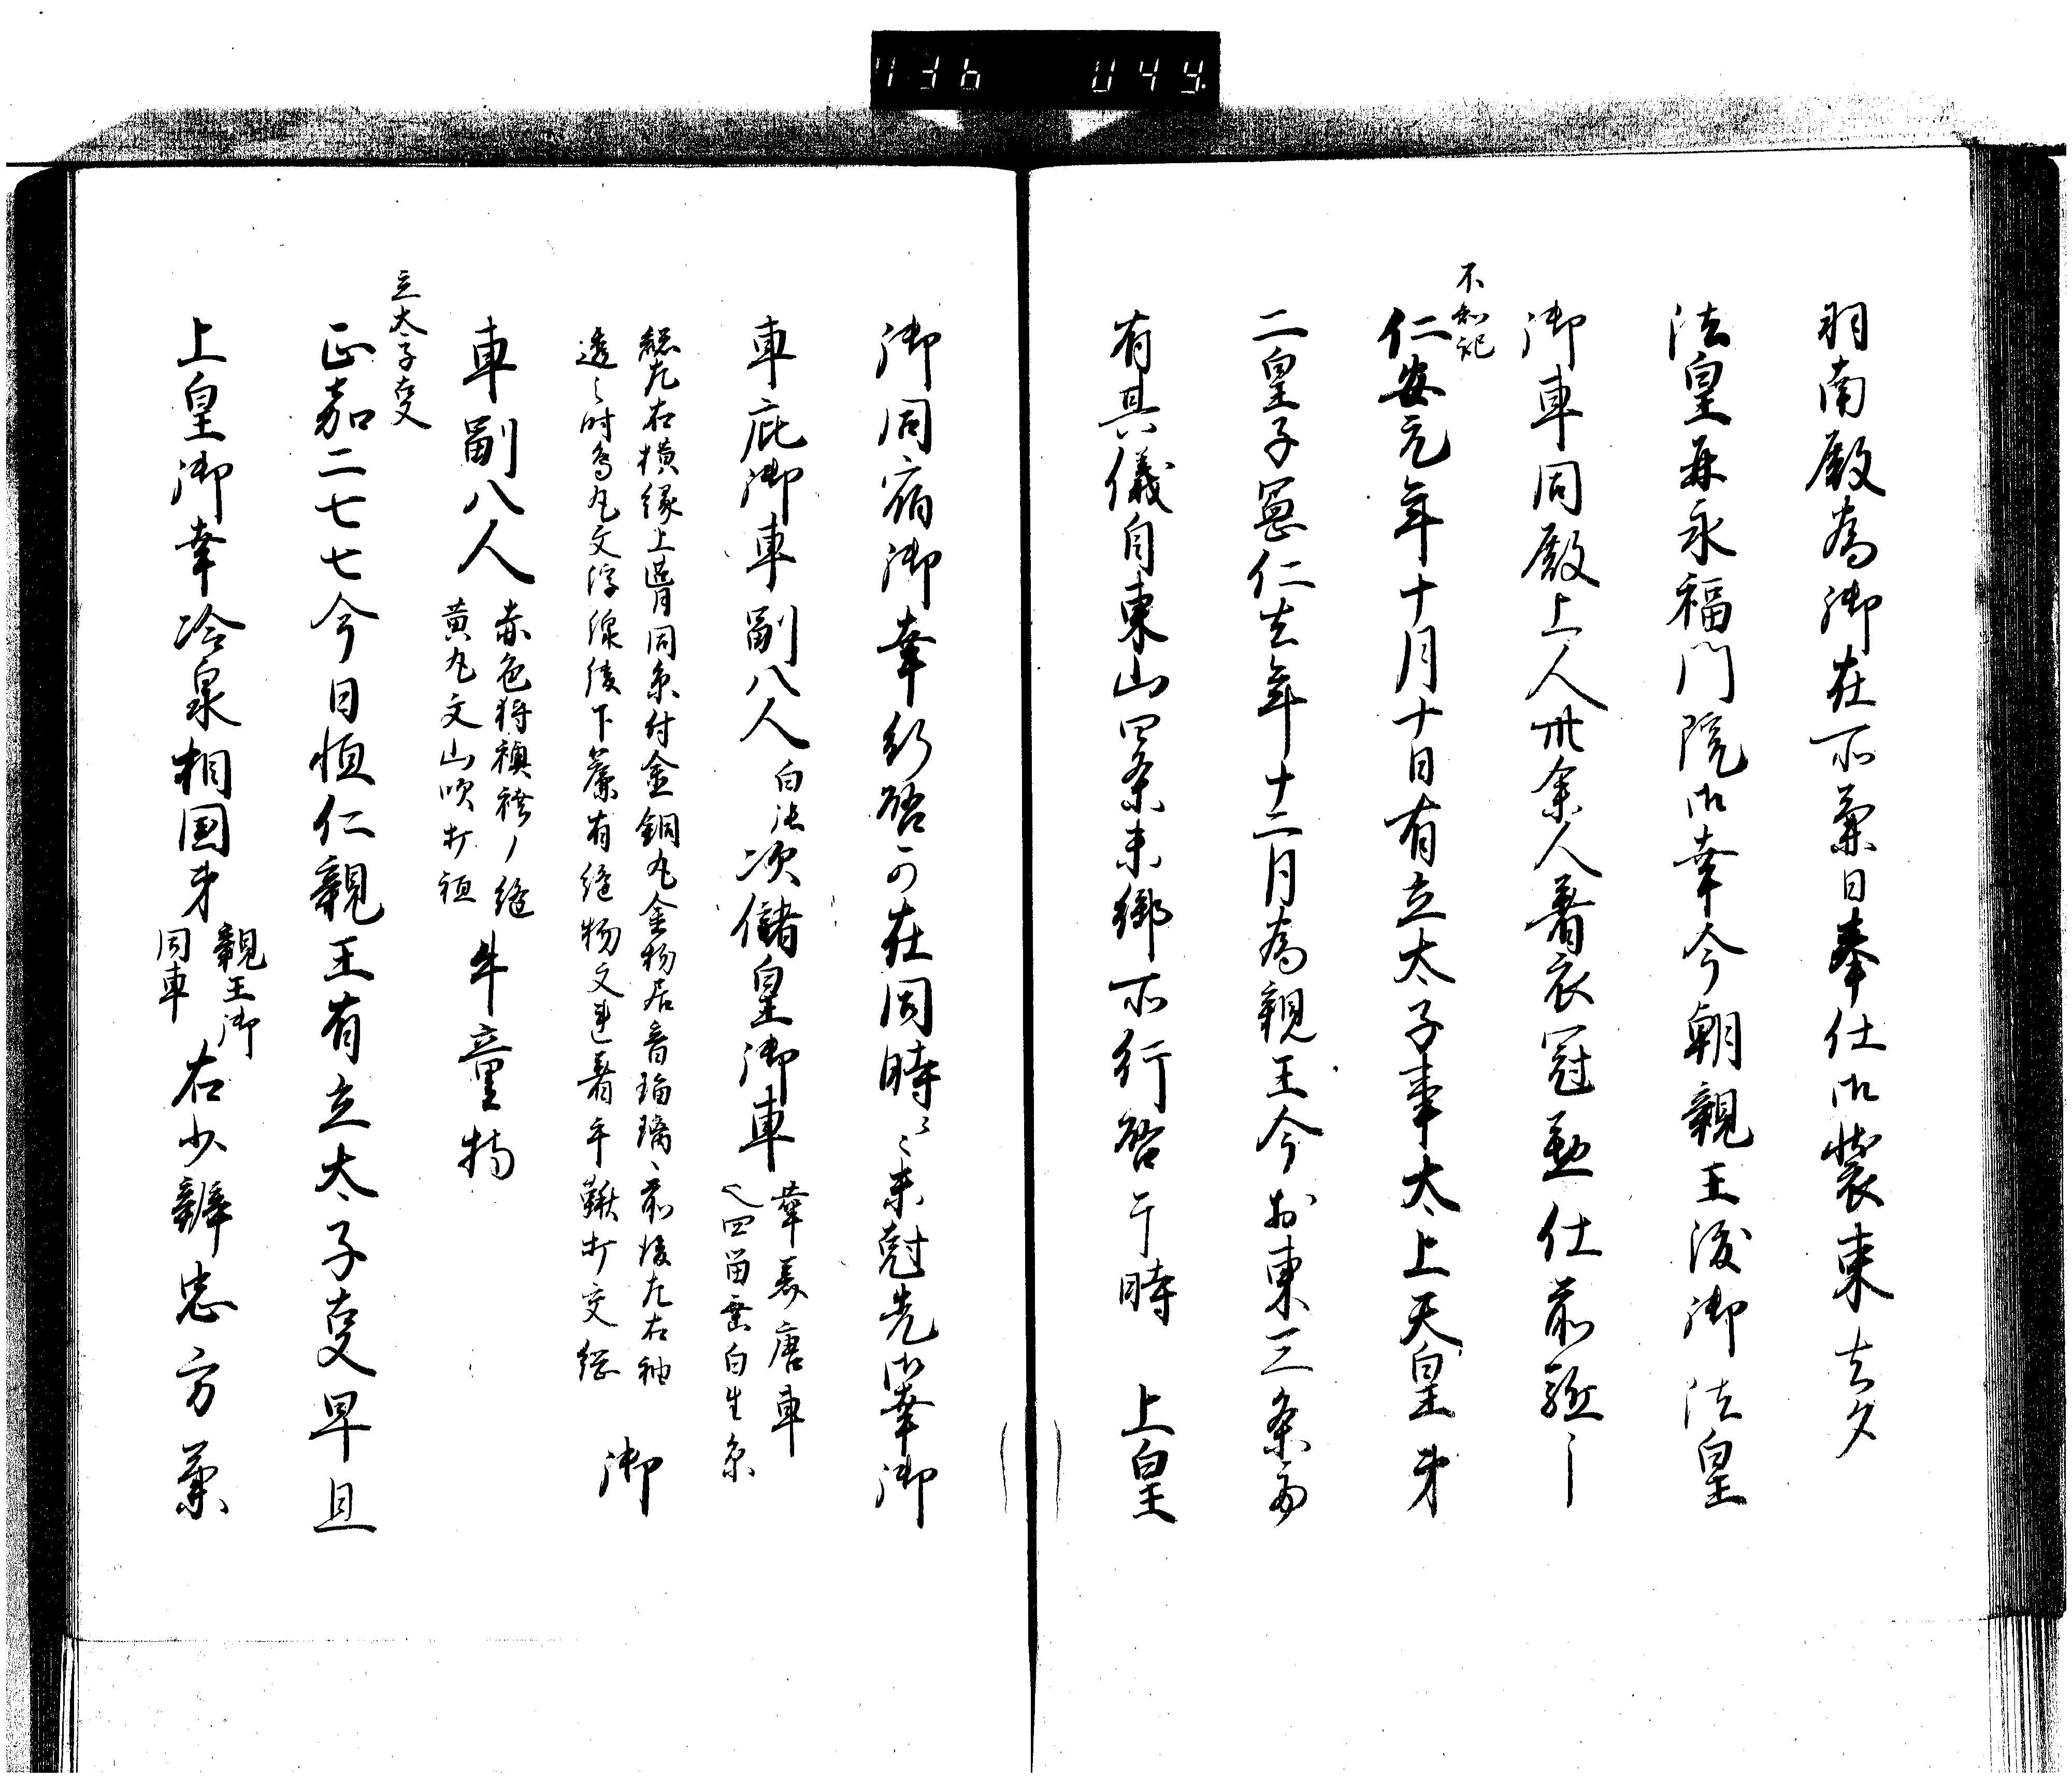 羽南殿為御在所兼日奉仕御装束去夕
法皇并永福門院御幸今朝親王渡御法皇
御車同殿上人卅余人著衣冠勤仕前駈
不知記
仁安元年十月十日有立太子事太上天皇第
二皇子憲仁去年十二月為親王今於東三条南
有其儀自東山四条末御所行啓于時 上皇
御同宿御幸行啓可在同時之未剋先御幸御
車庇御車副八人 白張 次儲皇御車 葺唐車
四面垂白生糸
総左右横縁上 同糸付金銅丸金物居 瑠璃 前後左右袖
透之時鳥丸文浮線綾下簾有絵物文 著牛鞦打交総 御
車副八人 赤色狩襖袴
黄丸文山吹打衵 牛童 物
立太子叓
正嘉二七七今日恒仁親王有立太子叓早旦
上皇御幸冷泉相国第 親王御
同車 右少辨忠方兼